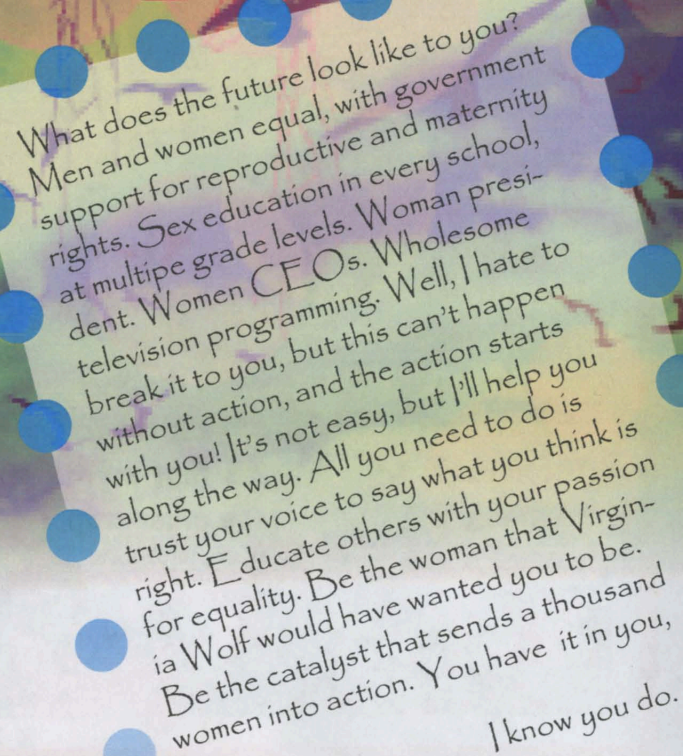 What does the future look like to you?
Men and women equal, with government
support for reproductive and maternity
rights. Sex education in every school,
at multipe grade levels. Woman presi-
dent. Women CEOs. Wholesome
television programming. Well, I hate to
break it to you, but this can't happen
without action, and the action starts
with you! It's not easy, but I'll help you
along the way. All you need to do is
trust your voice to say what you think is
right. Educate others with your passion
for equality. Be the woman that Virgin-
ia Wolf would have wanted you to be.
Be the catalyst that sends a thousand
women into action. You have it in you,
I know you do.